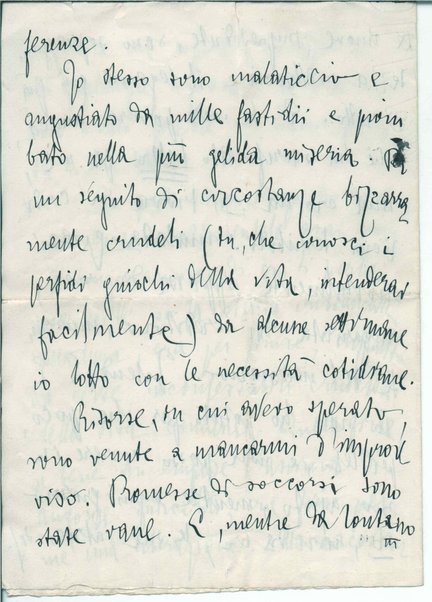 ferenze.
Io stesso sono malaticcio e
angustiato da mille fastidii e piom
bato nella più gelida miseria. Da
un seguito di circostanze bizzarra
mente crudeli (tu, che conosci i
perfidi giuochi della vita, intenderai
facilmente) da alcune settimane
io lotto con le necessità cotidiane.
Risorse, in cui avevo sperato,
sono venute a mancarmi d'improv
viso. Promesse di soccorsi sono
state vane. E, mentre da lontano